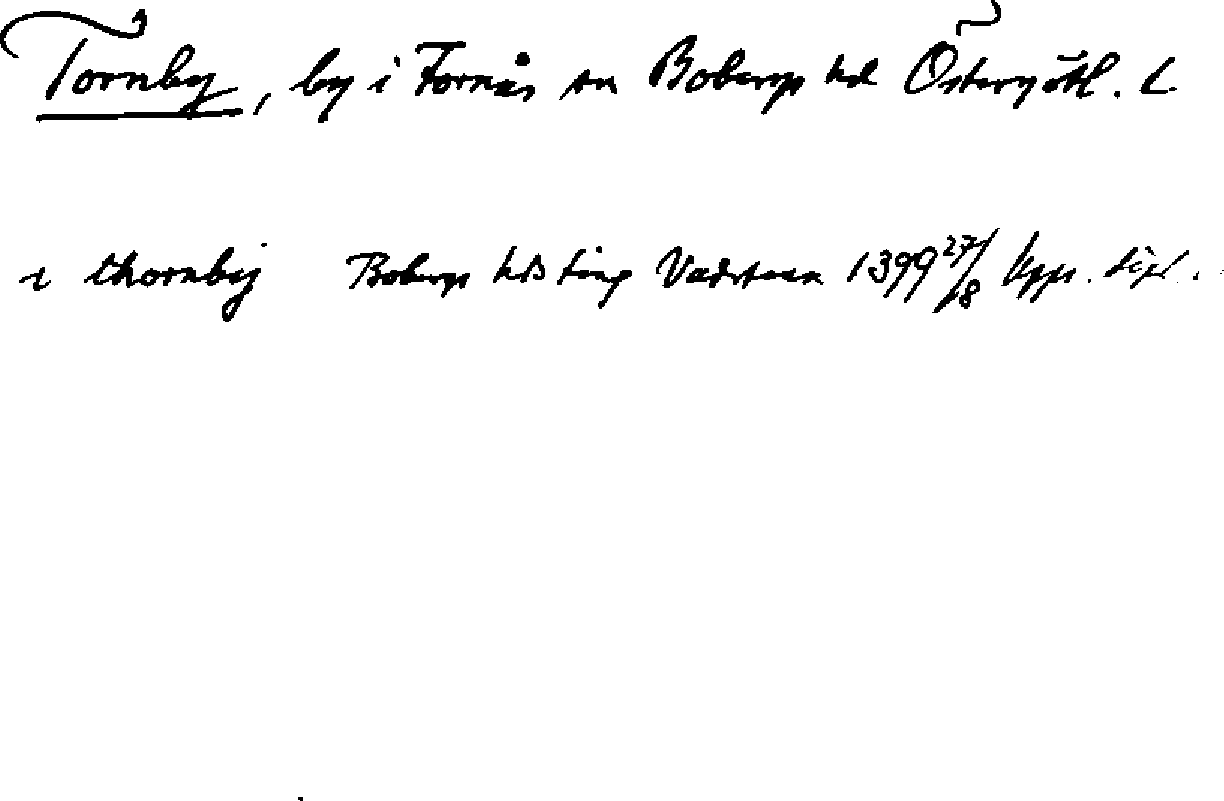 Tornby, by i Fornås sn Bobergs hd Östergötl. L.
i thornbij Bobergs hds ting Vadstena 1399 27/8 Upps. dipl.